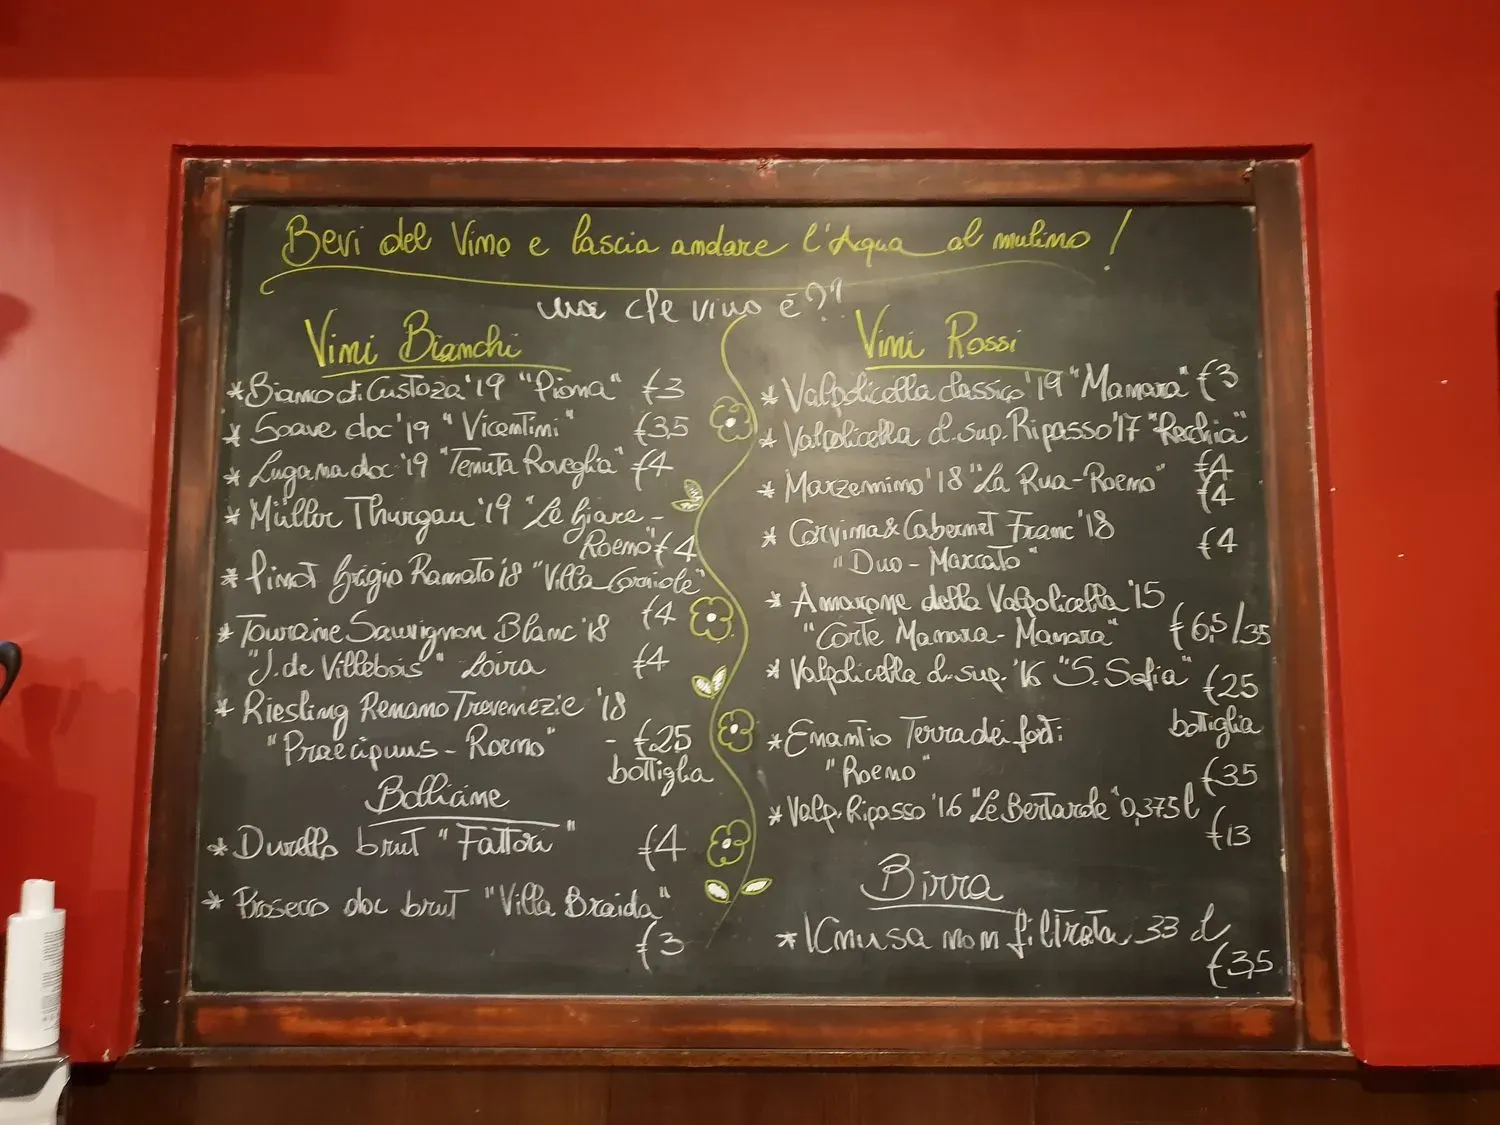 Bevi del Vino e lascia andare l'Acqua al mulino!
ma che vino è??
Vini Bianchi
* Bianco di Custoza '19 "Piona" €3
* Soave doc '19 "Vicentini" €3,5
* Lugana doc '19 "Tenuta Roveglia" €4
* Müller Thurgau '19 "Le Giare -
Roeno" €4
* Pinot Grigio Ramato '18 "Villa Corniole"
€4
* Touraine Sauvignon Blanc '18
"J. de Villebois" Loira €4
* Riesling Renano Trevenezie '18
"Praecipuus - Roeno" - €25
bottiglia
Bollicine
* Durello brut "Fattori" €4
* Prosecco doc brut "Villa Braida"
€3
Vini Rossi
* Valpolicella classico '19 "Manara" €3
* Valpolicella d. sup. Ripasso '17 "Recchia"
€4
* Marzemino '18 "La Rua - Roeno" €4
* Corvina & Cabernet Franc '18
"Duo - Marcato" €4
* Amarone della Valpolicella '15
"Corte Manara - Manara" €6,5/35
* Valpolicella d. sup. '16 "S. Sofia" €25
bottiglia
* Enantio Terra dei forti
"Roeno" €35
* Valp. Ripasso '16 "Le Bertarole" 0,375 l
€13
Birra
* Icnusa non filtrata 33 cl
€3,5